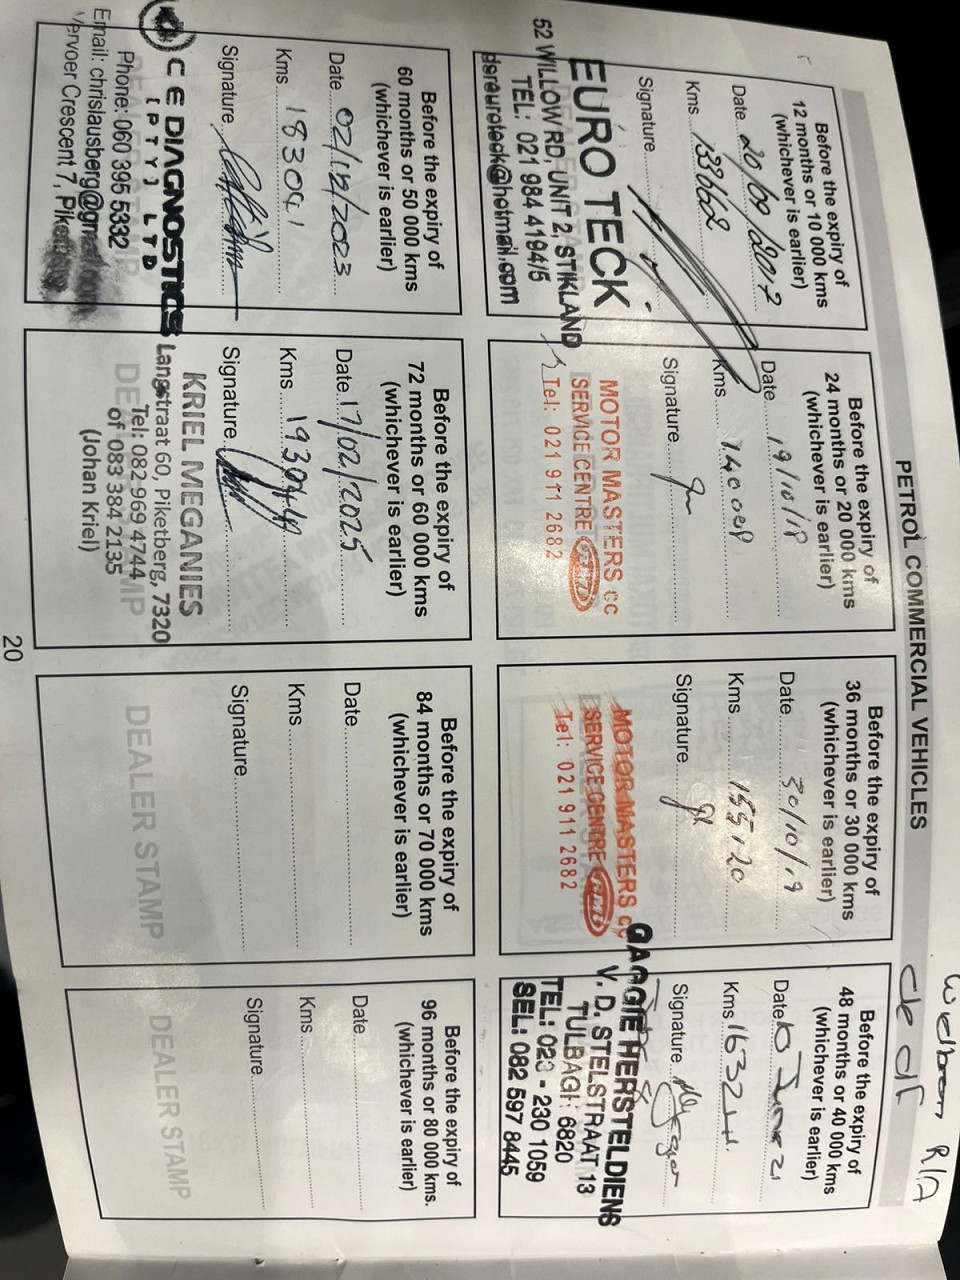 PETROL COMMERCIAL VEHICLES
Before the expiry of
12 months or 10 000 kms
(whichever is earlier)
Date
Kms
Signature
EURO TECK
52 WILLOW RD, UNIT 2, STIKLAND
TEL: 021 984 4194/5
dsreuroteck@hotmail.com
Before the expiry of
24 months or 20 000 kms
(whichever is earlier)
Date 19/10/18
Kms
Signature
MOTOR MASTERS CC
SERVICE CENTRE
Tel: 021 911 2682
Before the expiry of
36 months or 30 000 kms
(whichever is earlier)
Date 30/10/19
Kms 155120
Signature
MOTOR MASTERS CC
SERVICE CENTRE
Tel: 021 911 2682
Before the expiry of
48 months or 40 000 kms
(whichever is earlier)
Date
Kms
Signature
GAGGIE HERSTELDIENS
V. D. STELSTRAAT 13
TULBAGH 6820
TEL: 023 - 230 1059
SEL: 082 597 8445
Before the expiry of
60 months or 50 000 kms
(whichever is earlier)
Date 02/12/2023
Kms 183041
Signature
C E DIAGNOSTICS
(PTY) LTD
Phone: 060 395 5332
Email: chrislausberg@gmail.com
Vervoer Crescent 7, Piketberg
Before the expiry of
72 months or 60 000 kms
(whichever is earlier)
Date 17/02/2025
Kms
Signature
KRIEL MEGANIES
Langstraat 60, Piketberg, 7320
Tel: 082 969 4744
of 083 384 2135
(Johan Kriel)
Before the expiry of
84 months or 70 000 kms
(whichever is earlier)
Date
Kms
Signature
DEALER STAMP
Before the expiry of
96 months or 80 000 kms.
(whichever is earlier)
Date
Kms
Signature
DEALER STAMP
20